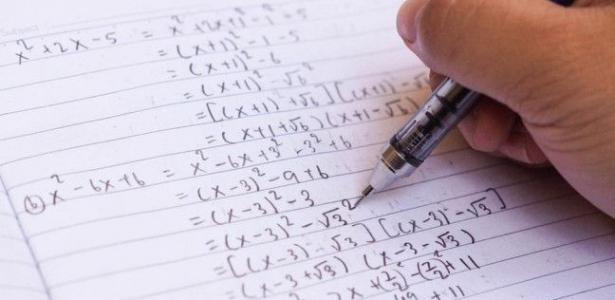 x² + 2x - 5 = x² + 2x + 1 - 1 - 5
= (x+1)² - 1 - 5
= (x+1)² - 6
= (x+1)² - √6²
= [(x+1) + √6] [(x+1) - √6
= (x+1+√6)(x+1-√6
(b) x² - 6x + 6 = x² - 6x + 3² - 3² + 6
= (x-3)² - 9 + 6
= (x-3)² - 3
= (x-3)² - √3²
= [(x-3) - √3] [(x-3) - √3]
= (x-3+√3) (x-3-√3)